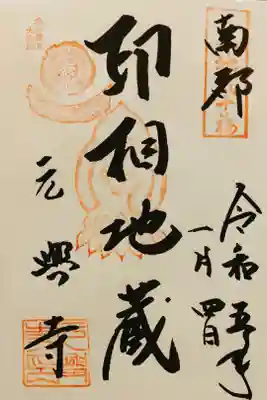 南都
令和五年
一月四日
印相地蔵
元興寺